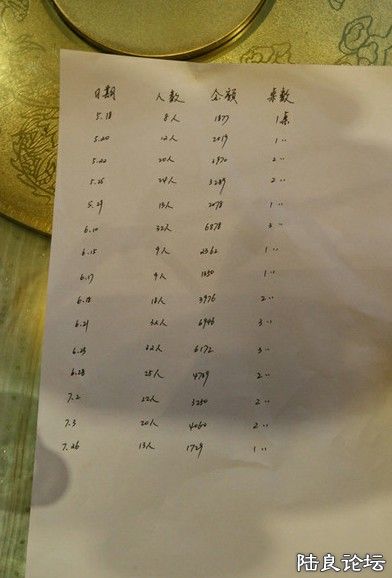 日期 人数 金额 桌数
5.18 8人 1877 1桌
5.20 12人 2019 1〃
5.22 20人 2〃
5.25 24人 3289 2〃
5.29 13人 2078 1〃
6.10 32人 6878 3〃
6.15 9人 2362 1〃
6.17 9人 1350 1〃
6.18 18人 3976 2〃
6.21 32人 6946 3〃
6.23 32人 6172 3〃
6.28 25人 4729 2〃
7.2 22人 3250 2〃
7.3 20人 4060 2〃
7.26 13人 1729 1〃
陆良论坛